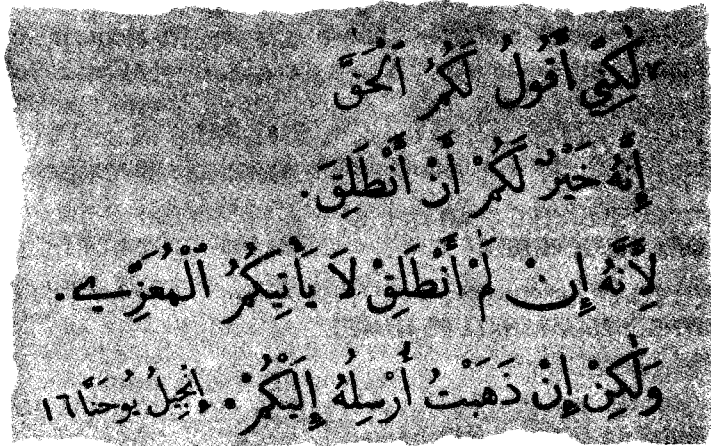 ٧ لٰكِنِّي أَقُولُ لَكُمُ ٱلْحَقَّ
إِنَّهُ خَيْرٌ لَكُمْ أَنْ أَنْطَلِقَ.
لِأَنَّهُ إِنْ لَمْ أَنْطَلِقْ لَا يَأْتِيكُمُ ٱلْمُعَزِّي.
وَلٰكِنْ إِنْ ذَهَبْتُ أُرْسِلُهُ إِلَيْكُمْ. . إِنْجِيلُ يُوحَنَّا ١٦